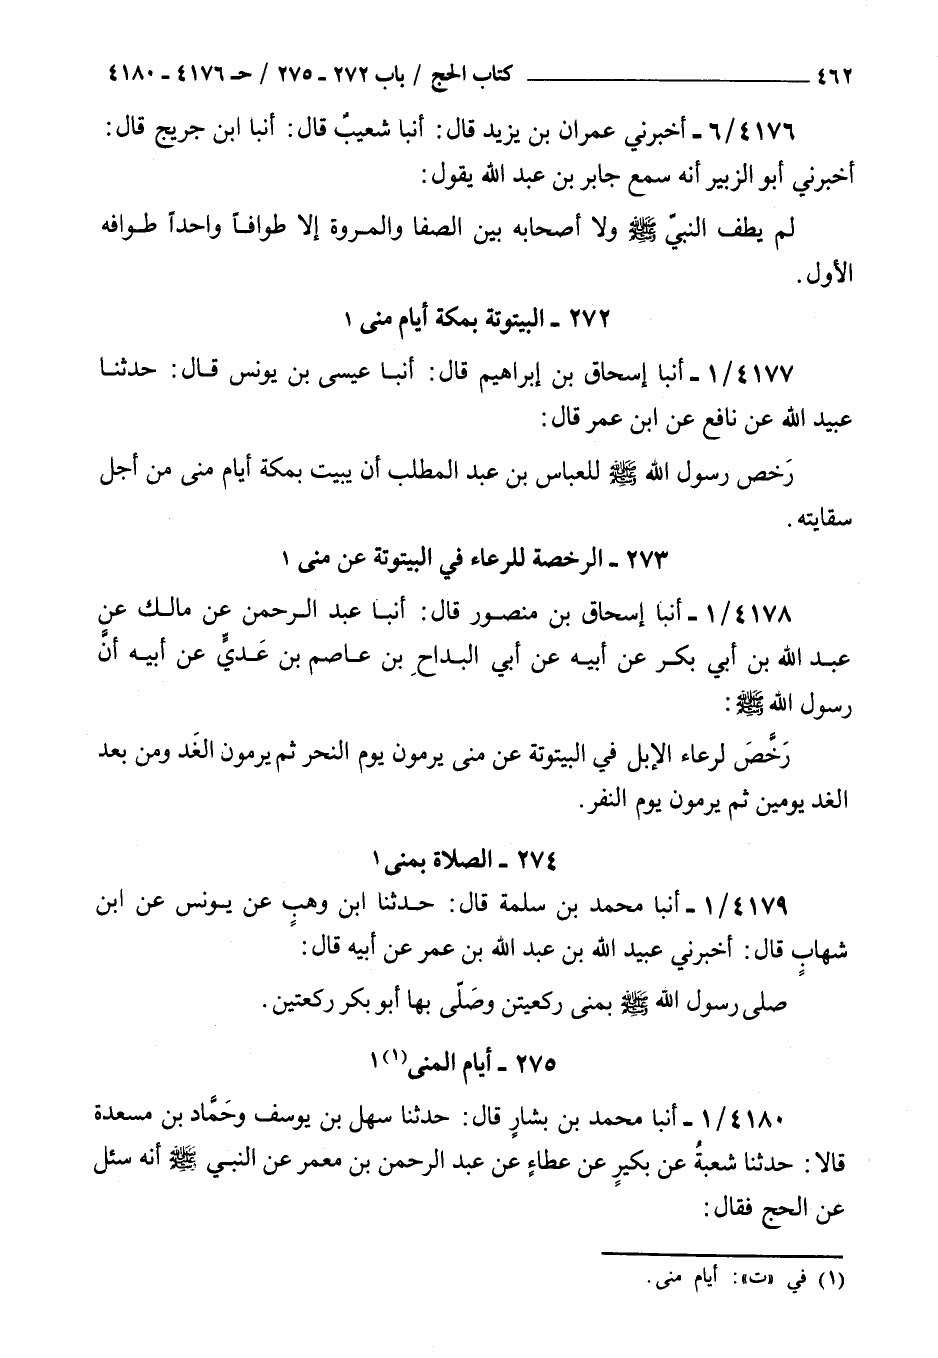 ٤٦٢ ـــــــ كتاب الحج / باب ٢٧٢ - ٢٧٥ / حـ ٤١٧٦ - ٤١٨٠
٦/٤١٧٦ - أخبرني عمران بن يزيد قال: أنبا شعيبٌ قال: أنبا ابن جريج قال:
أخبرني أبو الزبير أنه سمع جابر بن عبد الله يقول:
لم يطف النبيّ ﷺ ولا أصحابه بين الصفا والمروة إلا طوافاً واحداً طوافه
الأول.
٢٧٢ - البيتوتة بمكة أيام منى ١
١/٤١٧٧ - أنبا إسحاق بن إبراهيم قال: أنبا عيسى بن يونس قال: حدثنا
عبيد الله عن نافع عن ابن عمر قال:
رَخص رسول الله ﷺ للعباس بن عبد المطلب أن يبيت بمكة أيام منى من أجل
سقايته.
٢٧٣ - الرخصة للرعاء في البيتوتة عن منى ١
١/٤١٧٨ - أنبا إسحاق بن منصور قال: أنبا عبد الرحمن عن مالك عن
عبد الله بن أبي بكر عن أبيه عن أبي البداحِ بن عاصم بن عَديٍّ عن أبيه أنَّ
رسول الله ﷺ:
رَخَّصَ لرعاء الإبل في البيتوتة عن منى يرمون يوم النحر ثم يرمون الغَد ومن بعد
الغد يومين ثم يرمون يوم النفر.
٢٧٤ - الصلاة بمنى ١
١/٤١٧٩ - أنبا محمد بن سلمة قال: حدثنا ابن وهبٍ عن يونس عن ابن
شهابٍ قال: أخبرني عبيد الله بن عبد الله بن عمر عن أبيه قال:
صلى رسول الله ﷺ بمنى ركعيتن وصَلّى بها أبو بكر ركعتين.
٢٧٥ - أيام المنى(١) ١
١/٤١٨٠ - أنبا محمد بن بشارٍ قال: حدثنا سهل بن يوسف وحَمَّاد بن مسعدة
قالا: حدثنا شعبةُ عن بكيرٍ عن عطاءٍ عن عبد الرحمن بن معمر عن النبي ﷺ أنه سئل
عن الحج فقال:
(١) في «ت»: أيام منى.